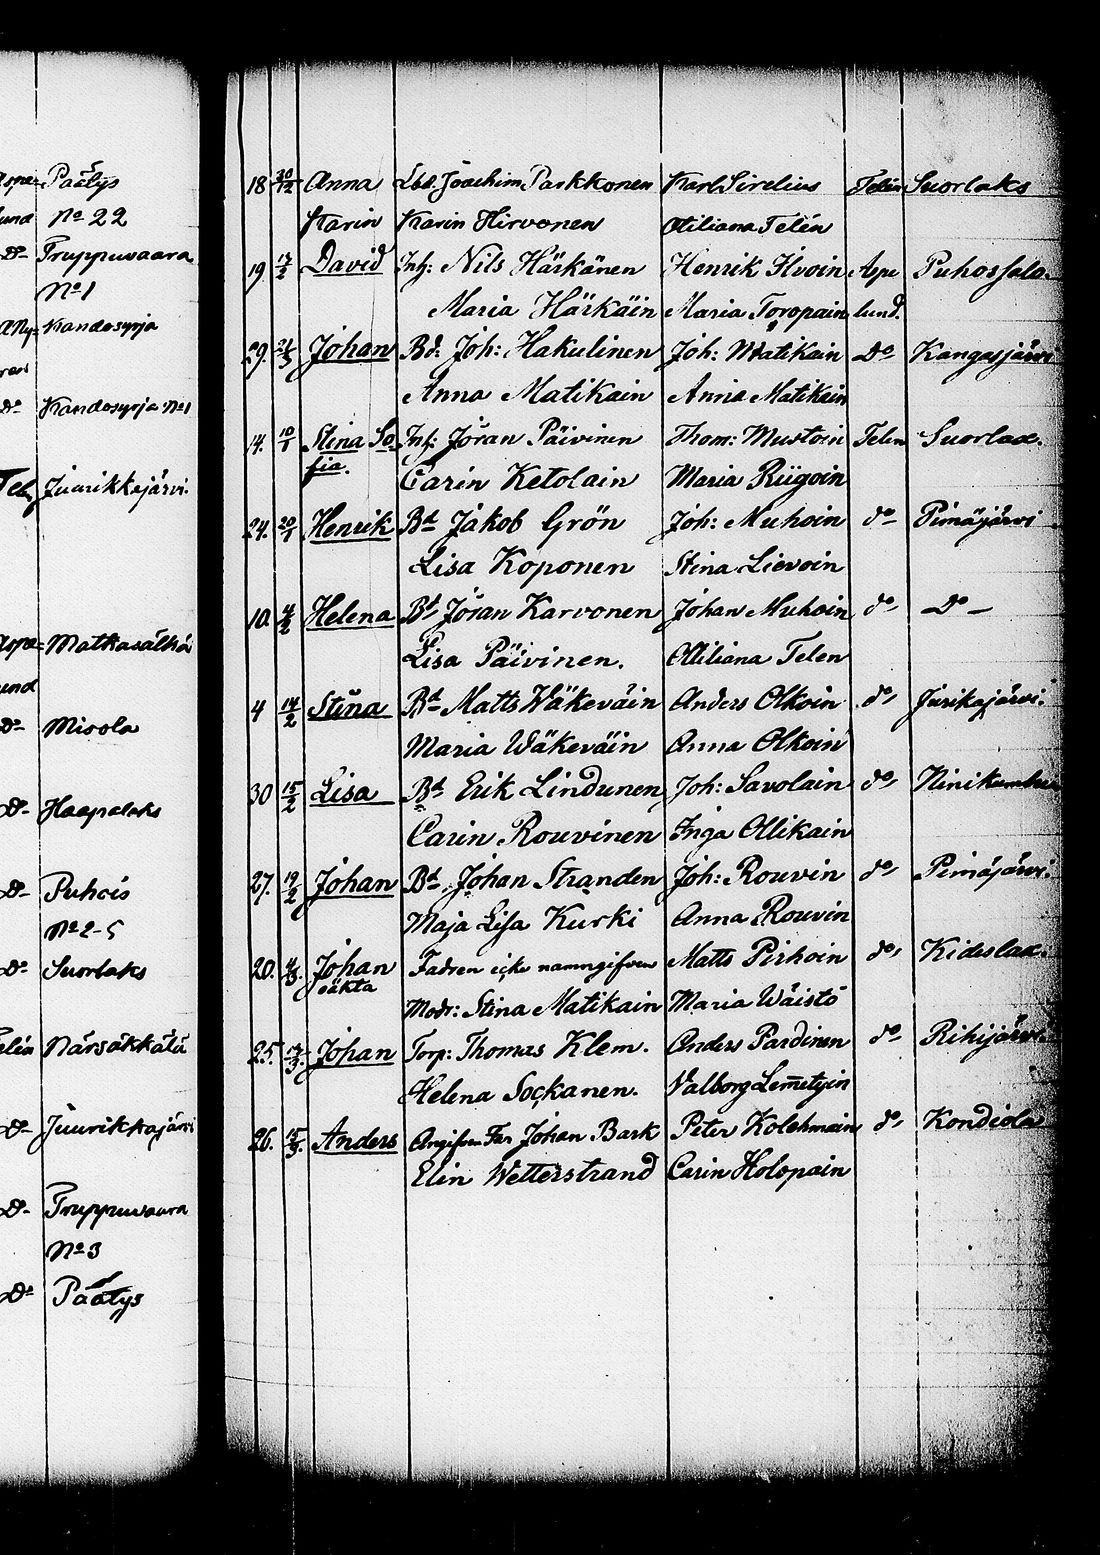 Päälys
No 22
Truppuvaara
No 1
Kandosyrja
Do Kandosyrja No 1
Juurikkajärvi
Matkasälkä
Do Misola
Do Haapalaks
Do Puhois
No 2-5
Do Suorlaks
Närsäkkälä
Do Juurikkajärvi
Do Truppuvaara
No 3
Do Päälys
18 30/12 Anna Lbd. Joachim Parkkonen Karl Sirelius Telén Suorlaks
Karin Karin Hirvonen Otiliana Telén
19 David Inh: Nils Härkänen Henrik Ihvoin Aspe Puhossalo
Maria Härkäin Maria Toropain lund.
29. Johan Bd: Joh: Hakulinen Joh: Matikain Do Kangasjärvi
Anna Matikain Anna Matikain
14. 10/1 Stina So Inh: Jöran Päivinen Thom: Mustoin Telen Suorlax.
fia. Carin Ketolain Maria Riigoin
24. 20/1 Henrik Bd Jakob Grön Joh: Muhoin do Pimäjärvi
Lisa Koponen Stina Lievoin
10. Helena Bd Jöran Karvonen Johan Muhoin do Do
Lisa Päivinen. Otiliana Telen
4 14/2 Stina Bd Matts Wäkeväin Anders Olkoin do Jurikajärvi.
Maria Wäkeväin Anna Olkoin
30 15/2 Lisa Bd Erik Lindunen Joh: Savolain do Ninikumbu
Carin Rouvinen Inga Ollikain
27. 19/2 Johan Bd. Johan Stranden Joh: Rouvin do Pimäjärvi.
Maja Lisa Kurki Anna Rouvin
20. Johan Fadren icke namngifven Matts Pirhoin do Kideslax.
oäkta Modr: Stina Matikain Maria Wäistö
25. Johan Torp: Thomas Klem. Anders Pardinen do Rihijärvi
Helena Sockanen. Valborg Lemetyin
26. 15/3. Anders Angifven Far Johan Bark Peter Kolehmain do Kondiola
Elin Wetterstrand Carin Holopain